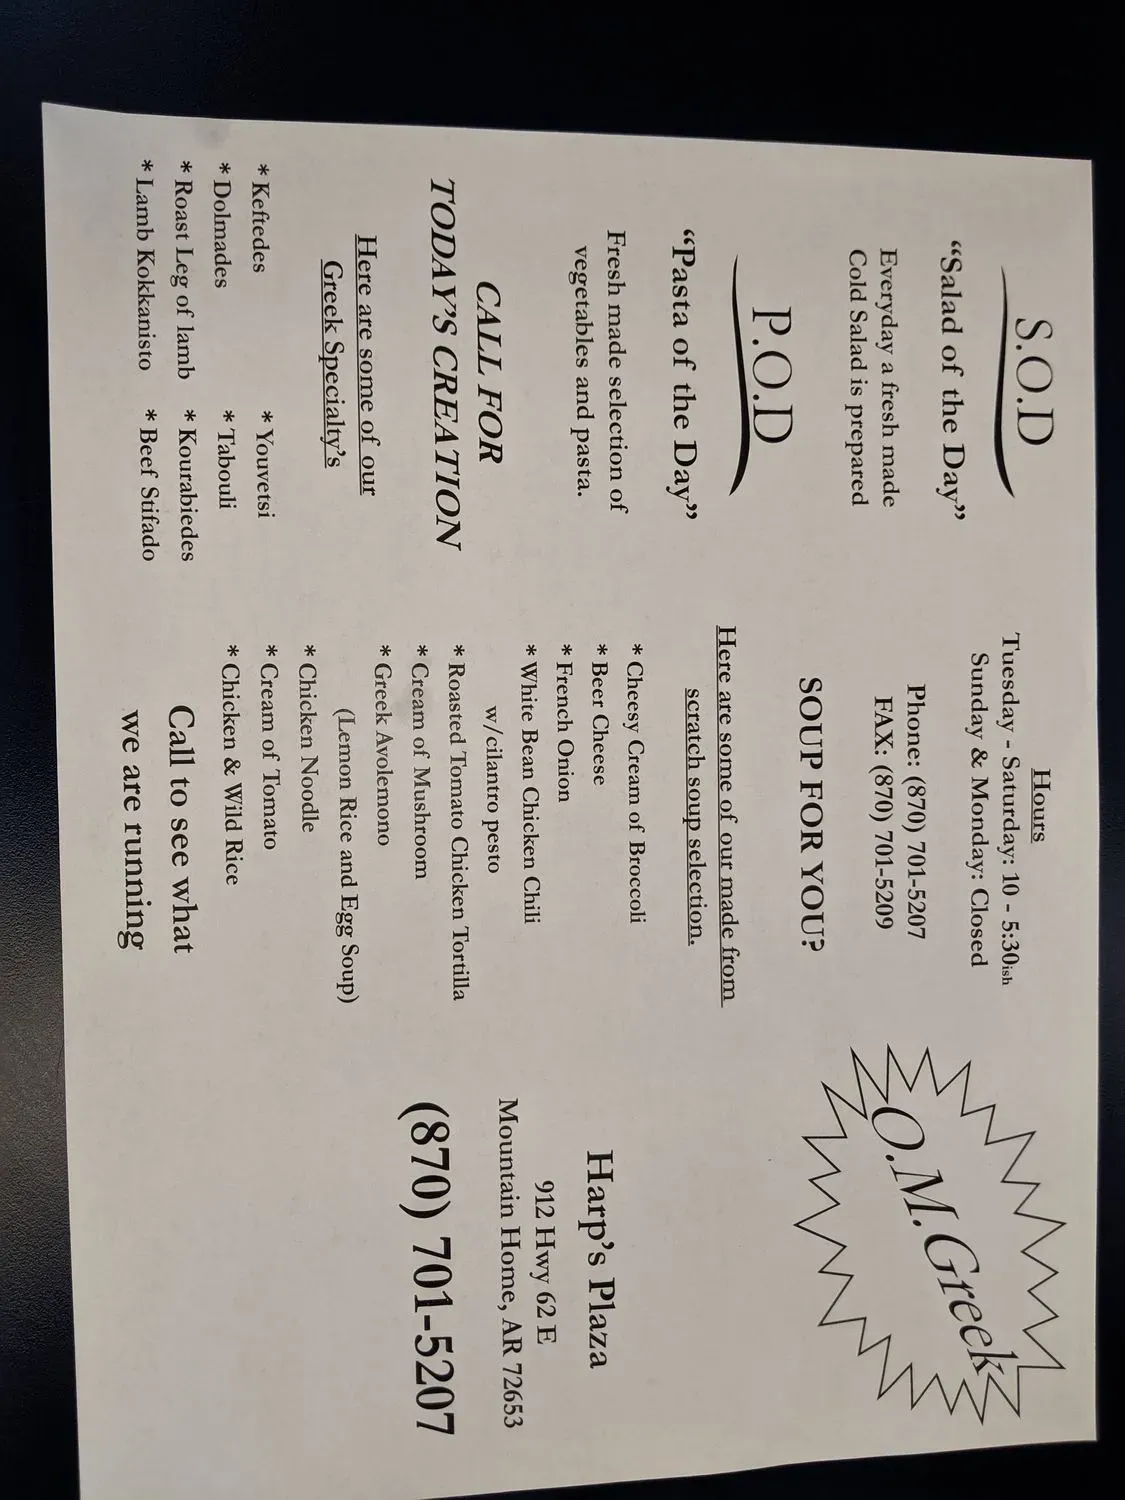 S.O.D
“Salad of the Day”
Everyday a fresh made
Cold Salad is prepared
P.O.D
“Pasta of the Day”
Fresh made selection of
vegetables and pasta.
CALL FOR
TODAY'S CREATION
Here are some of our
Greek Specialty's
* Keftedes
* Dolmades
* Roast Leg of lamb
* Lamb Kokkanisto
* Youvetsi
* Tabouli
* Kourabiedes
* Beef Stifado
Hours
Tuesday - Saturday: 10 - 5:30ish
Sunday & Monday: Closed
Phone: (870) 701-5207
FAX: (870) 701-5209
SOUP FOR YOU?
Here are some of our made from
scratch soup selection.
* Cheesy Cream of Broccoli
* Beer Cheese
* French Onion
* White Bean Chicken Chili
w/cilantro pesto
* Roasted Tomato Chicken Tortilla
* Cream of Mushroom
* Greek Avolemono
(Lemon Rice and Egg Soup)
* Chicken Noodle
* Cream of Tomato
* Chicken & Wild Rice
Call to see what
we are running
O.M.Greek
Harp's Plaza
912 Hwy 62 E
Mountain Home, AR 72653
(870) 701-5207